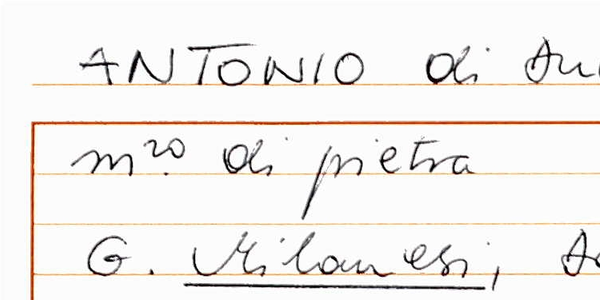 ANTONIO di
m.ro di pietra
G. Milanesi,